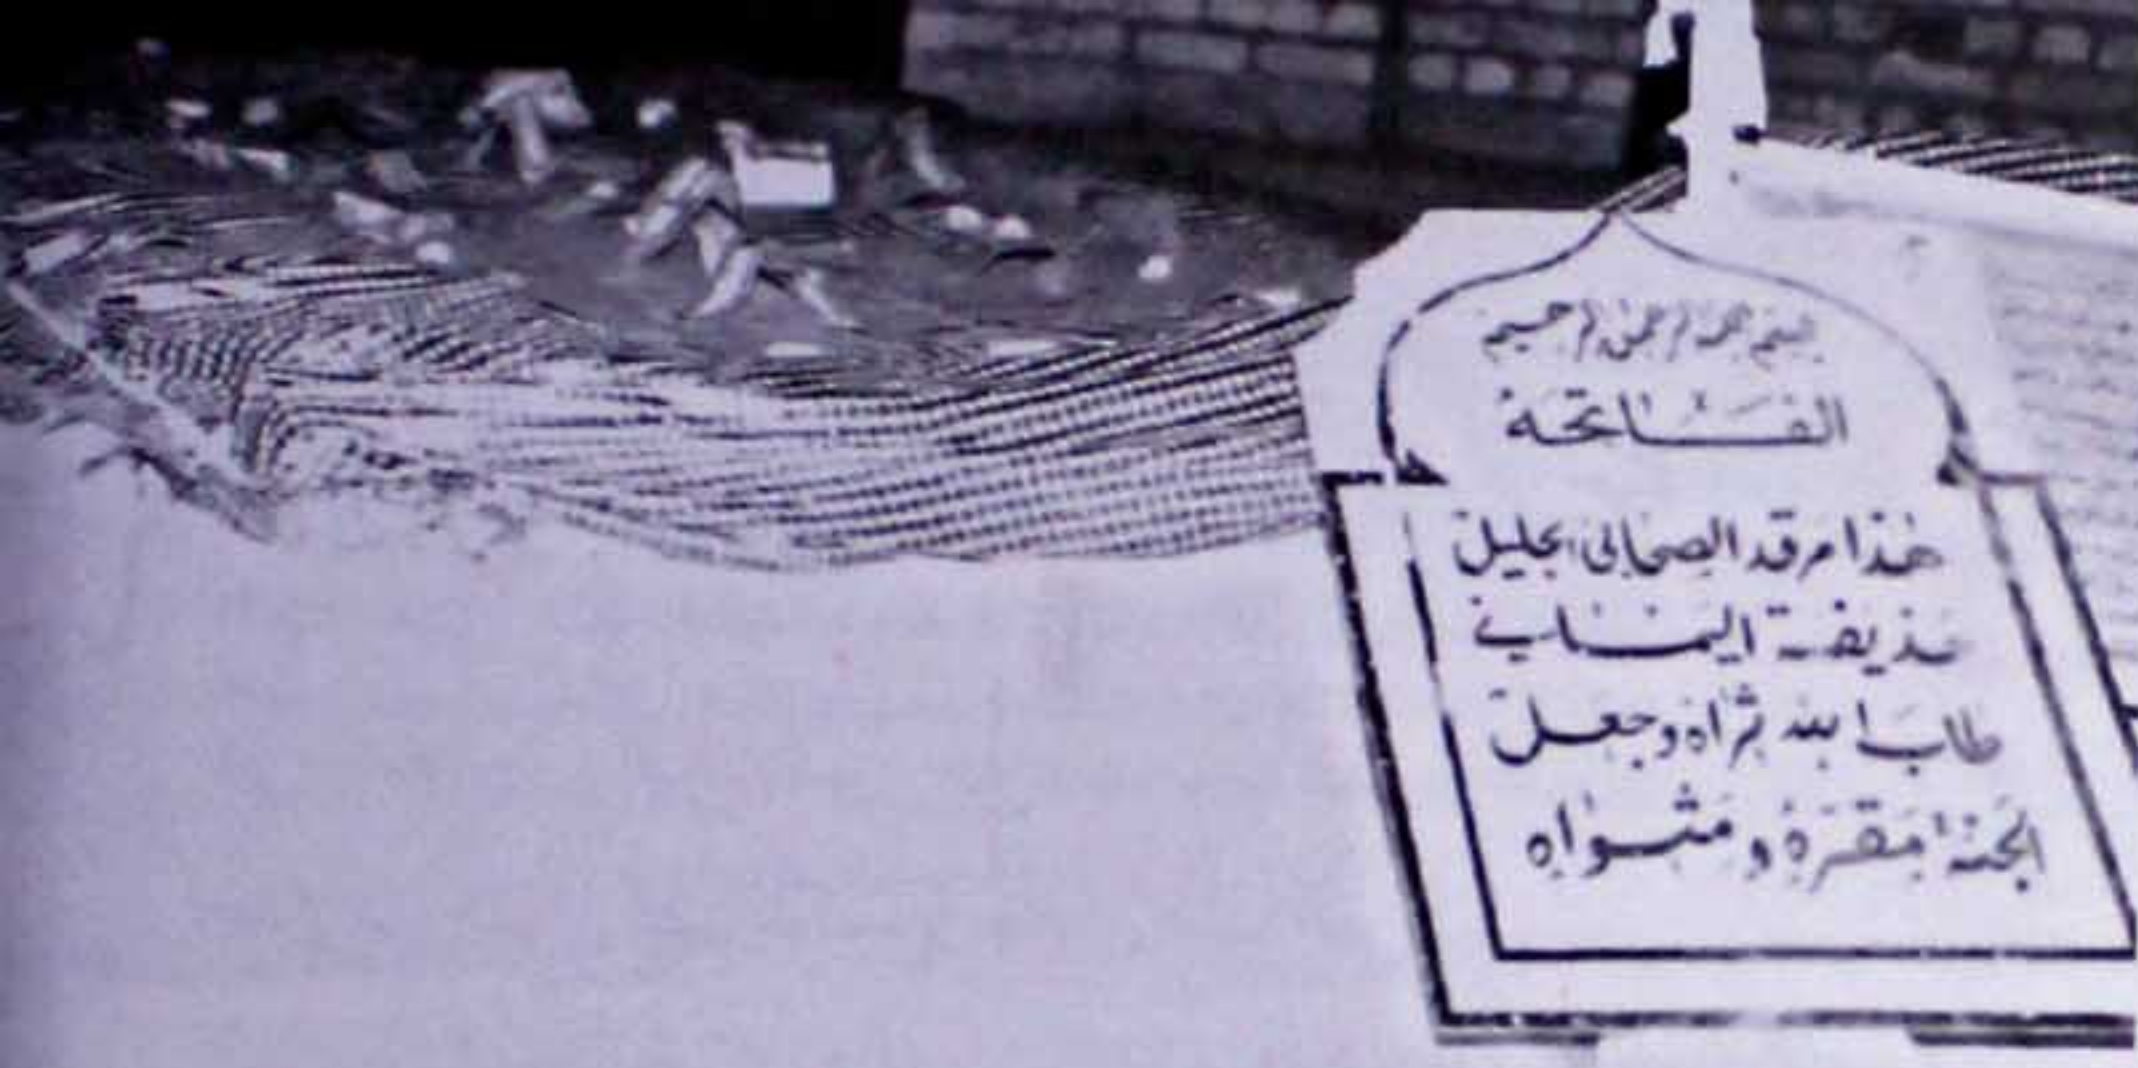 بسم الله الرحمن الرحيم
الفاتحة
هذا مرقد الصحابي الجليل
حذيفة اليماني
طاب الله ثراه وجعل
الجنة مقره ومثواه